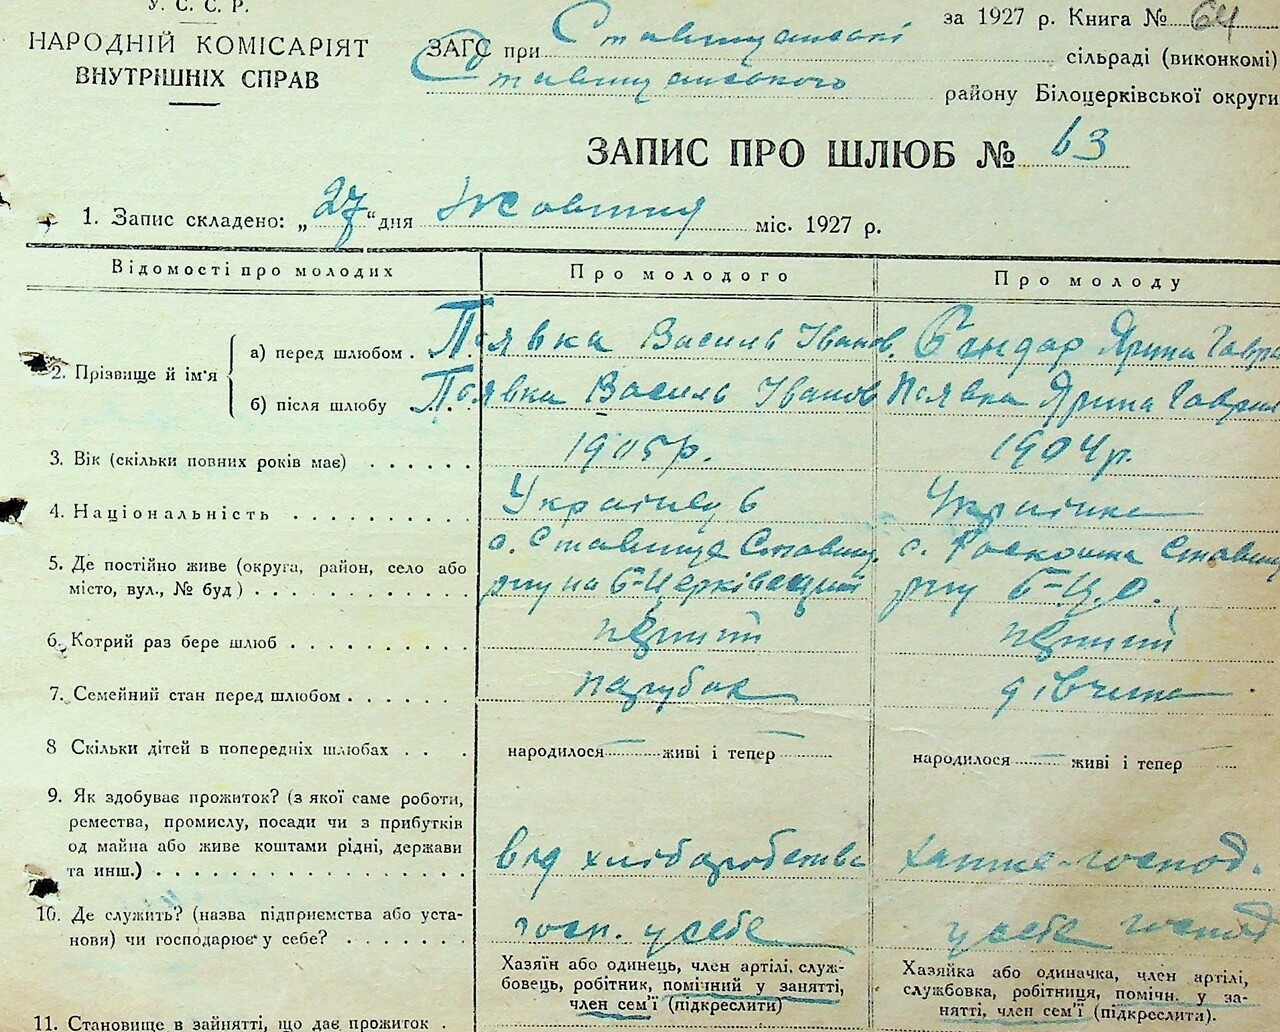 У. С. С. Р.
НАРОДНІЙ КОМІСАРІЯТ
ВНУТРІШНІХ СПРАВ
за 1927 р. Книга № 64
ЗАГС при Ставищанські сільраді (виконкомі)
Ставищанського району Білоцерківської округи
ЗАПИС ПРО ШЛЮБ № 63
1. Запис складено: „27“ дня Жовтня міс. 1927 р.
Відомості про молодих Про молодого Про молоду
2. Прізвище й ім'я
а) перед шлюбом . Василь Іванов. Бондар Ярина Гавр
б) після шлюбу Василь Іванов Ярина Гаврил
3. Вік (скільки повних років має) . . . . . . 1905 р. 1904 р.
4. Національність . . . . . . . . . . Українець Українка
5. Де постійно живе (округа, район, село або
місто, вул., № буд) . . . . . . . . . . . .
с. Ставище Ставищ.
р-ну на Б-Церківщині
с. Розкошна Ставищ
р-ну Б-Ц.О.
6. Котрий раз бере шлюб . . . . . . . . . . перший перший
7. Семейний стан перед шлюбом . . . . . . парубок дівчина
8 Скільки дітей в попередніх шлюбах . . . народилося — живі і тепер — народилося — живі і тепер
9. Як здобуває прожиток? (з якої саме роботи,
ремества, промислу, посади чи з прибутків
од майна або живе коштами рідні, держави
та инш.) . . . . . . . . . . . . . . . . . від хліборобства хатнє-господ.
10. Де служить? (назва підприємства або уста-
нови) чи господарює у себе? . . . . . . . госп. у себе у себе господ
Хазяїн або одинець, член артілі, служ-
бовець, робітник, помічний у занятті,
член сем'ї (підкреслити)
Хазяйка або одиначка, член артілі,
службовка, робітниця, помічн. у за-
нятті, член сем'ї (підкреслити).
11. Становище в зайнятті, що дає прожиток .